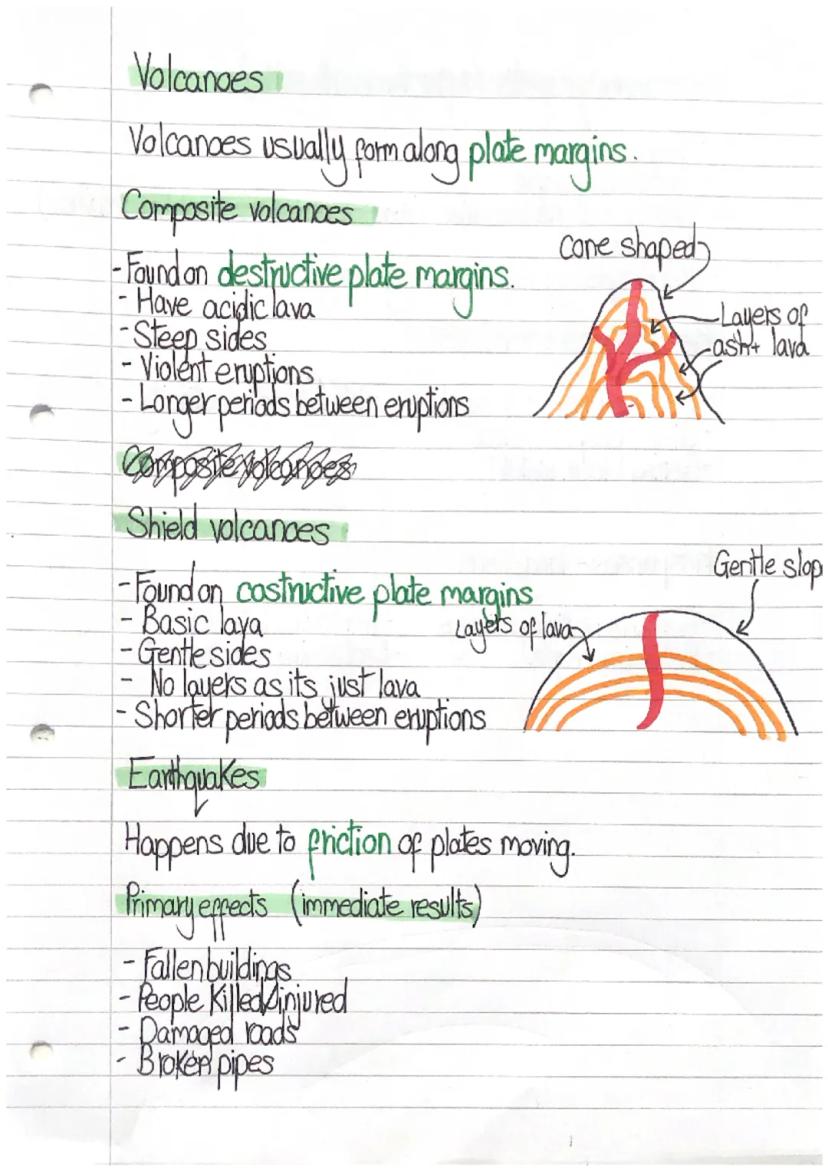 Volcanoes
Volcanoes usually form along plate margins.
Composite volcanoes
cone shaped
- Found on destructive plate margins.
- Have acidic lava
- Steep sides
- Violent eruptions
- Longer periods between eruptions
Layers of
ash + lava
Composite volcanoes
Shield volcanoes
Gentle slop
- Found on costructive plate margins
- Basic lava
Layers of lava
- Gentle sides
- No layers as its just lava
- Shorter periods between eruptions
Earthquakes
Happens due to friction of plates moving.
Primary effects (immediate results)
- Fallen buildings
- People Killed/injured
- Damaged roads
- Broken pipes